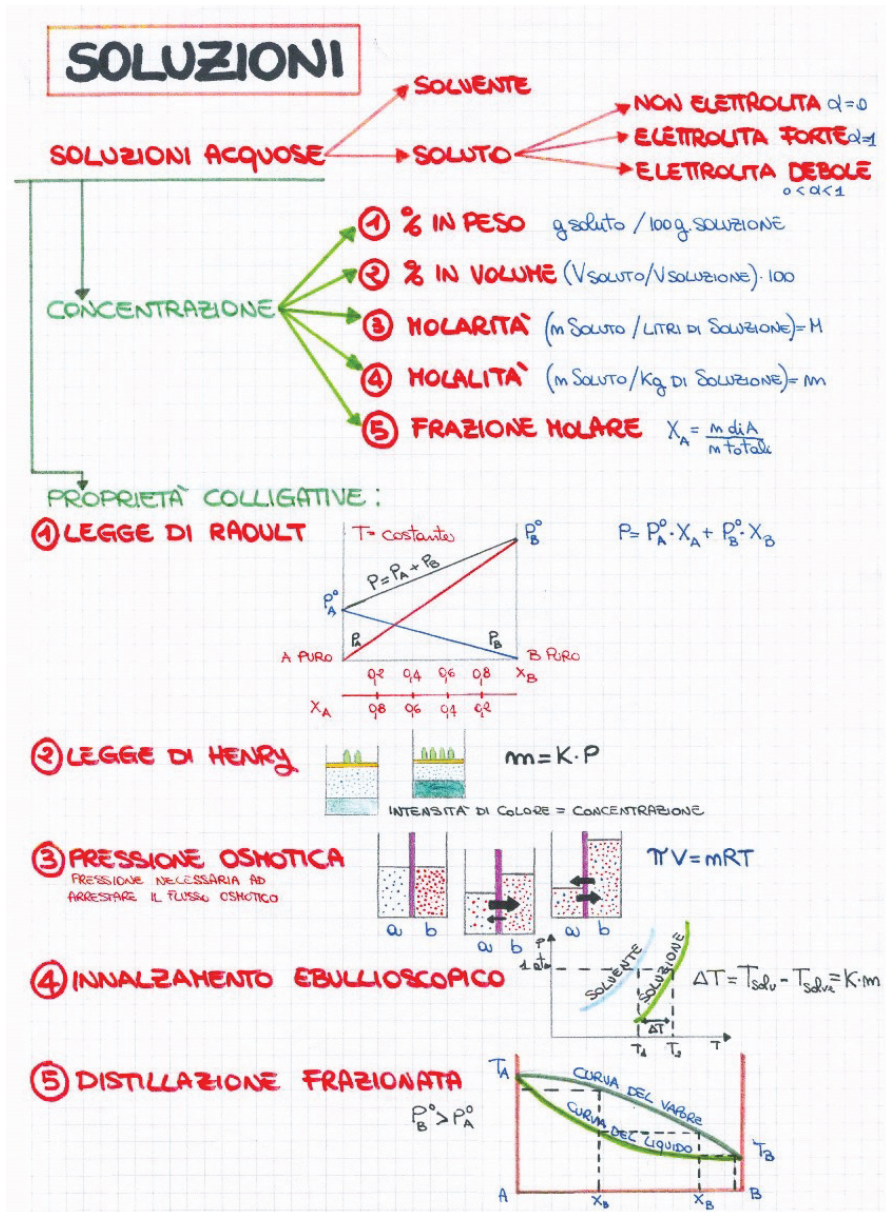 SOLUZIONI
SOLUZIONI ACQUOSE
SOLVENTE
SOLUTO
NON ELETTROLITA α=0
ELETTROLITA FORTE α=1
ELETTROLITA DEBOLE
0<α<1
CONCENTRAZIONE
① % IN PESO g soluto / 100 g. SOLUZIONE
② % IN VOLUME (V SOLUTO/V SOLUZIONE)·100
③ MOLARITÀ (m SOLUTO / LITRI DI SOLUZIONE)=M
④ MOLALITÀ (m SOLUTO/Kg DI SOLUZIONE)=m
⑤ FRAZIONE MOLARE X_A = m di A / m totali
PROPRIETÀ COLLIGATIVE:
① LEGGE DI RAOULT
T= costante
P=P_A+P_B
P°_A
P°_B
P_A
P_B
A PURO
B PURO
0,2 0,4 0,6 0,8 X_B
X_A 0,8 0,6 0,4 0,2
P=P°_A·X_A+P°_B·X_B
② LEGGE DI HENRY
m=K·P
INTENSITÀ DI COLORE = CONCENTRAZIONE
③ PRESSIONE OSMOTICA
PRESSIONE NECESSARIA AD
ARRESTARE IL FLUSSO OSMOTICO
a b
a b
a b
πV=mRT
④ INNALZAMENTO EBULLIOSCOPICO
P
1 at
SOLVENTE
SOLUZIONE
ΔT
T_1 T_2 T
ΔT=T_solu-T_solve=K·m
⑤ DISTILLAZIONE FRAZIONATA
P°_B>P°_A
T_A
CURVA DEL VAPORE
CURVA DEL LIQUIDO
T_B
A X_B X_B B